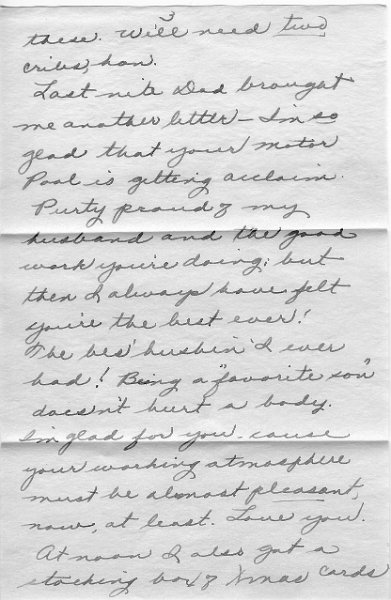 3
these. We'll need two
cribs, hon.
Last nite Dad brought
me another letter - I'm so
glad that your Motor
Pool is getting acclaim.
Purty proud of my
husband and the good
work you're doing; but
then I always have felt
you're the best ever!
The bes' husbin' I ever
had! Being a "favorite son"
doesn't hurt a body.
I'm glad for you - cause
your working atmosphere
must be almost pleasant,
now, at least. Love you.
At noon I also got a
stocking box of Xmas cards